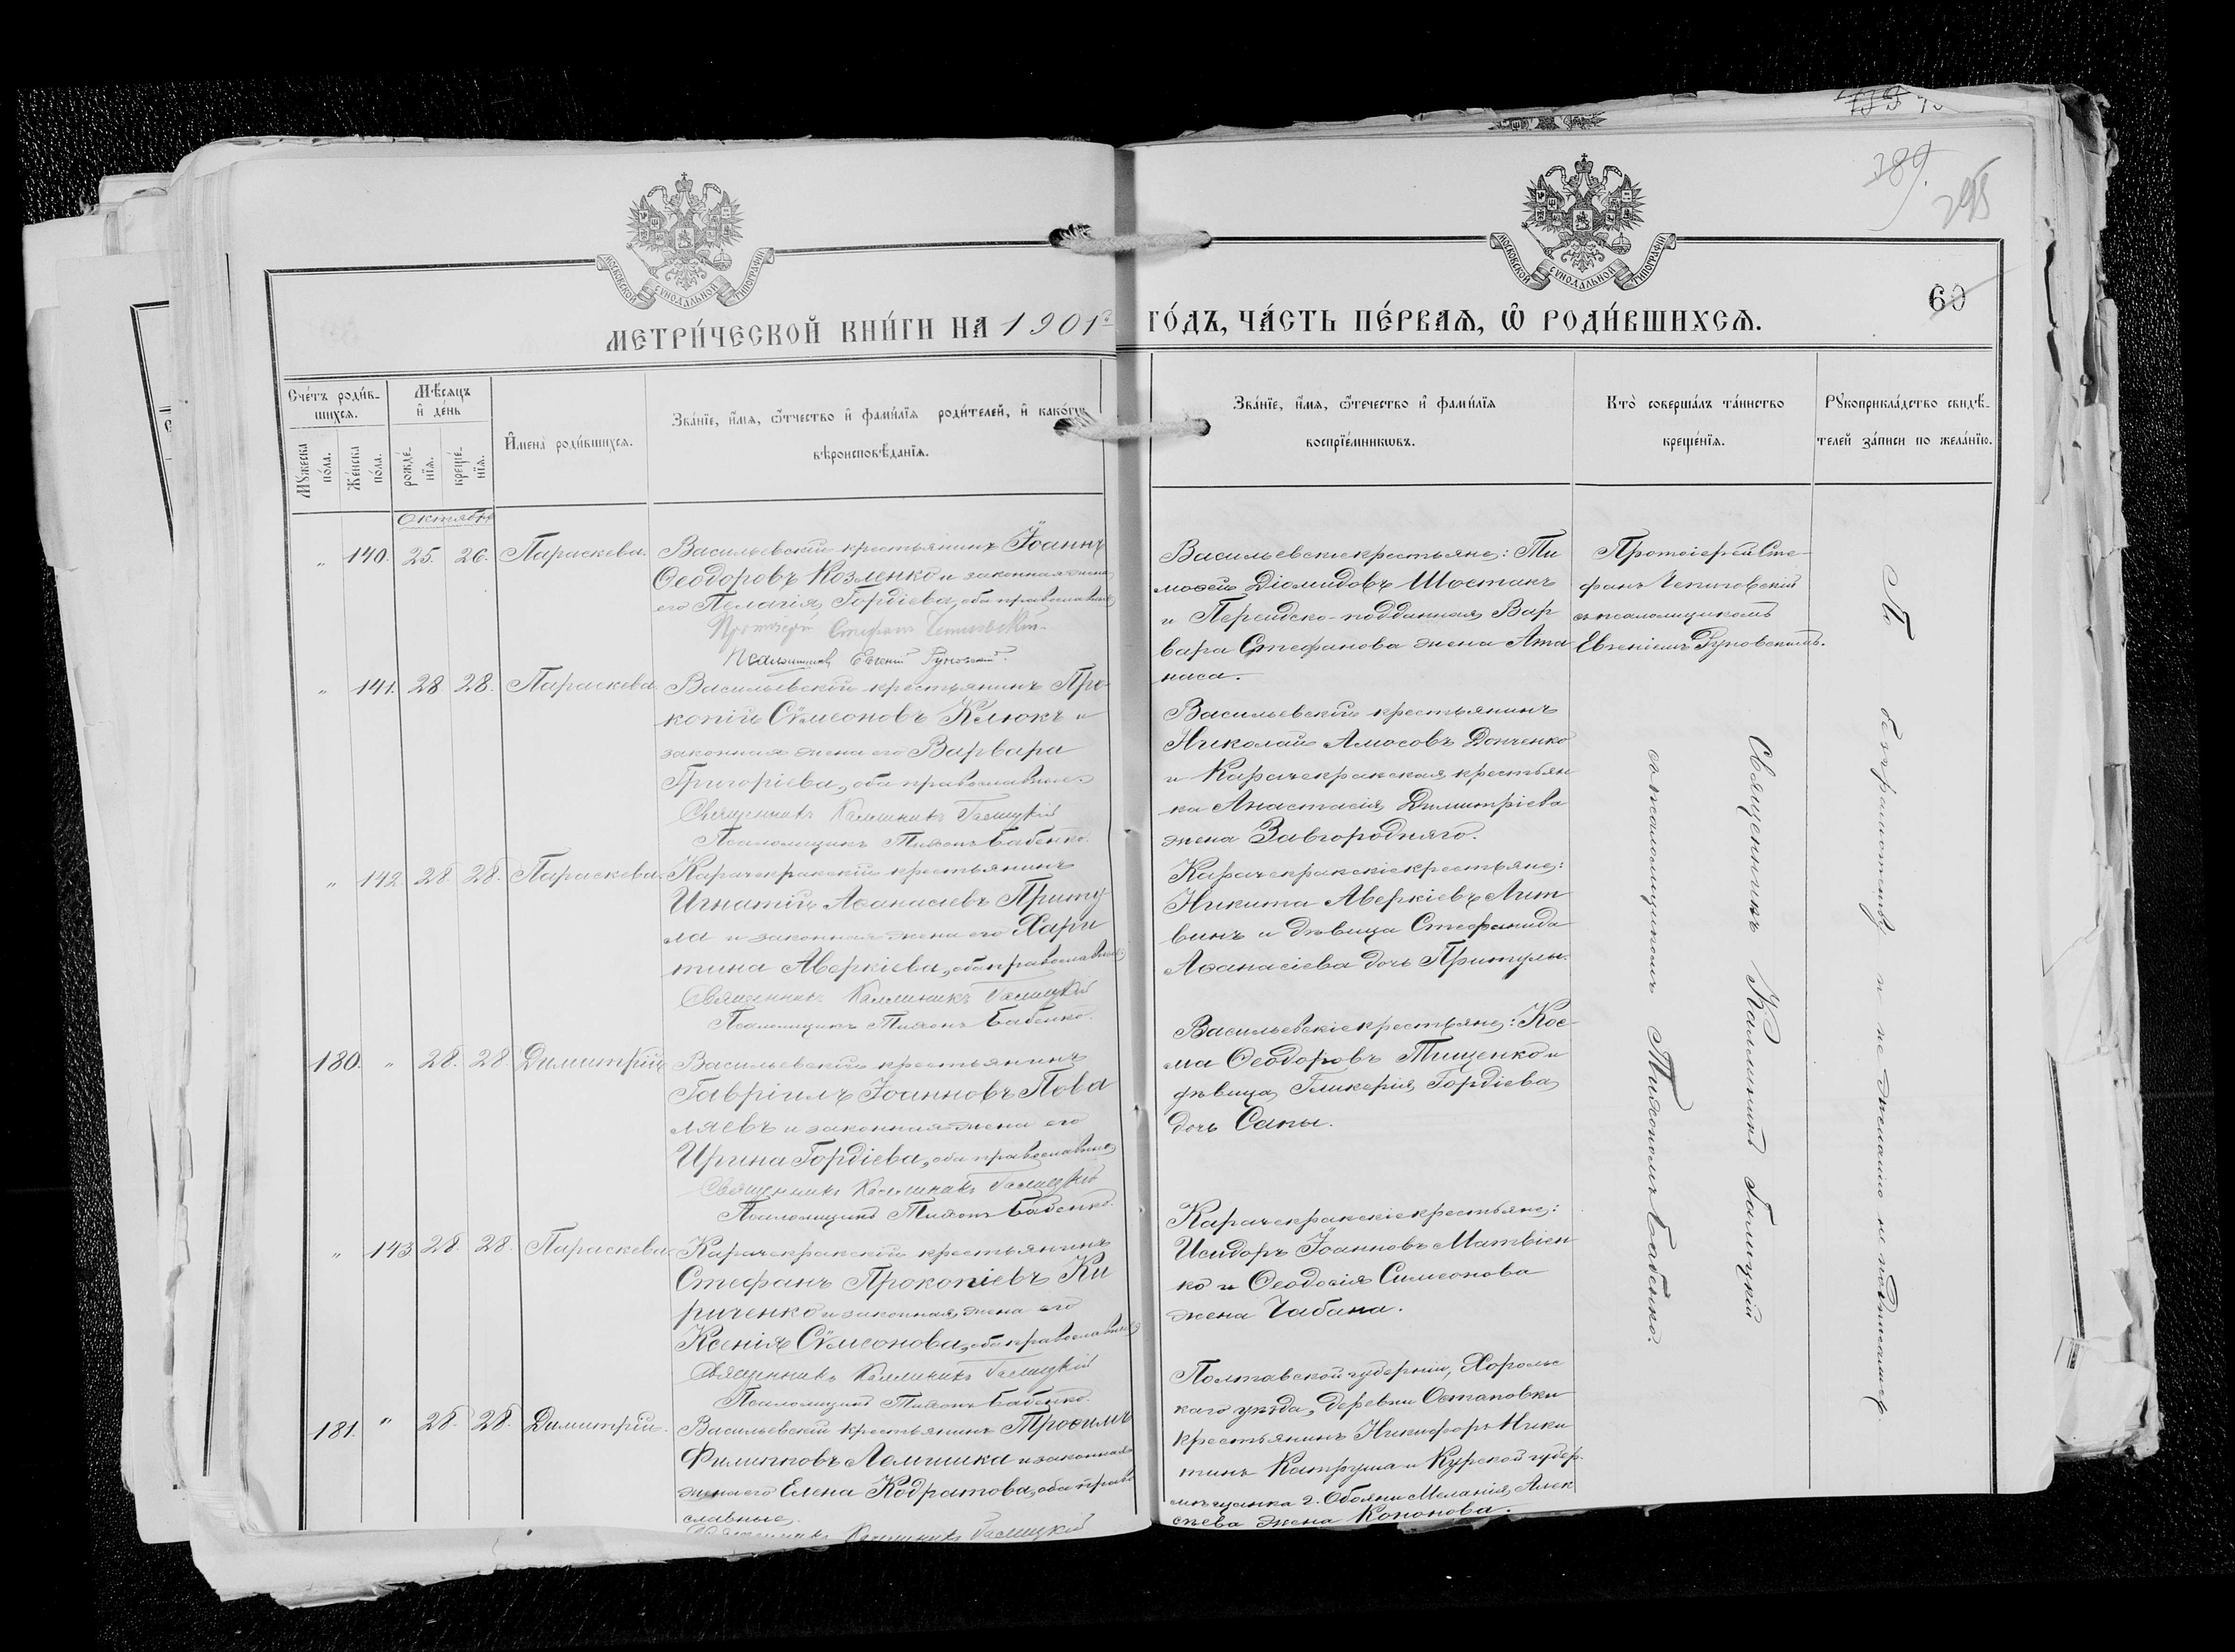 389.
295
60
МОСКОВСКОЙ СѴНОДАЛЬНОЙ ТИПОГРАФІИ
МОСКОВСКОЙ СѴНОДАЛЬНОЙ ТИПОГРАФІИ
МЕТРИ́ЧЕСКОЙ КНИ́ГИ НА 1901 ГО́ДЪ, ЧА́СТЬ ПЕ́РВАѦ, Ѿ РОДИ́ВШИХСѦ.
Сче́тъ роди́в-
шихся.
Мѣ́сяцъ
и де́нь
Мꙋжеска по́ла.
Же́нска по́ла.
рожде́-
нїя.
креще́-
нїя.
И҆мена̀ роди́вшихся.
Зва́нїе, и҆́мя, ѻ҆́тчество и҆ фами́лїя роди́телей, и҆ како́гѡ
вѣроисповѣ́данїя.
Зва́нїе, и҆́мя, ѻ҆́течество и҆ фами́лїя
воспрїе́мникѡвъ.
Кто̀ соверша́лъ та́инство
креще́нїя.
Рꙋкоприкла́дство свидѣ́-
телей за́писи по жела́нїю.
Октябрь
„ 140. 25. 26. Параскева.
Васильевскій крестьянинъ Іоаннъ
Ѳеодоровъ Козленко и законная жена
его Пелагія Гордіева, оба православные
Протоіерей Стефанъ
Псаломщикъ Евгеній Руновскій.
Васильевскіе крестьяне: Ти
моѳей Діомидовъ Шостакъ
и Персидско-подданная Вар
вара Стефанова жена Ата
наса.
Протоіерей Сте-
фанъ
съ псаломщикомъ
Евгеніемъ Руновскимъ.
„ 141. 28. 28. Параскева.
Васильевскій крестьянинъ Про-
копій Сѵмеоновъ Клюкъ и
законная жена его Варвара
Григоріева, оба православные
Священникъ Каллиникъ Галицкій
Псаломщикъ Тихонъ Бабенко.
Васильевскій крестьянинъ
Николай Амосовъ Донченко
и Карачекракская крестьян
ка Анастасія Димитріева
жена Завгородняго.
„ 142. 28. 28. Параскева.
Карачекракскій крестьянинъ
Игнатій Аѳанасіевъ Приту
ла и законная жена его Хари
тина Аверкіева, оба православные
Священникъ Каллиникъ Галицкій
Псаломщикъ Тихонъ Бабенко.
Карачекракскіе крестьяне:
Никита Аверкіевъ Лит
винъ и дѣвица Стефанида
Аѳанасіева дочь Притулы.
180. „ 28. 28. Димитрій
Васильевскій крестьянинъ
Гавріилъ Іоанновъ Пова
ляевъ и законная жена его
Ирина Гордіева, оба православные
Священникъ Каллиникъ Галицкій
Псаломщикъ Тихонъ Бабенко.
Васильевскіе крестьяне: Кос-
ма Ѳеодоровъ Тищенко и
дѣвица Гликерія Гордіева
дочь Сапы.
„ 143. 28. 28. Параскева
Карачекракскій крестьянинъ
Стефанъ Прокопіевъ Ки
риченко и законная жена его
Ксенія Сѵмеонова, оба православные
Священникъ Каллиникъ Галицкій
Псаломщикъ Тихонъ Бабенко.
Карачекракскіе крестьяне:
Исидоръ Іоанновъ Матвіен
ко и Ѳеодосія Симеонова
жена Чабана.
181. „ 28. 28. Димитрій.
Васильевскій крестьянинъ Трофимъ
Филипповъ и законная
жена его Елена Кодратова, оба право
славные.
Священникъ Каллиникъ Галицкій
Полтавской губерніи, Хорольс
каго уѣзда, деревни Остаповки
крестьянинъ Никифоръ Ники
тинъ Катруша и Курской губер.
мѣщанка г. Обояни Меланія Алек
сѣева жена Кононова.
Священникъ Каллиникъ Галицкій
съ псаломщикомъ Тихономъ Бабенко.
По безграмотству и не желанію не подписались.